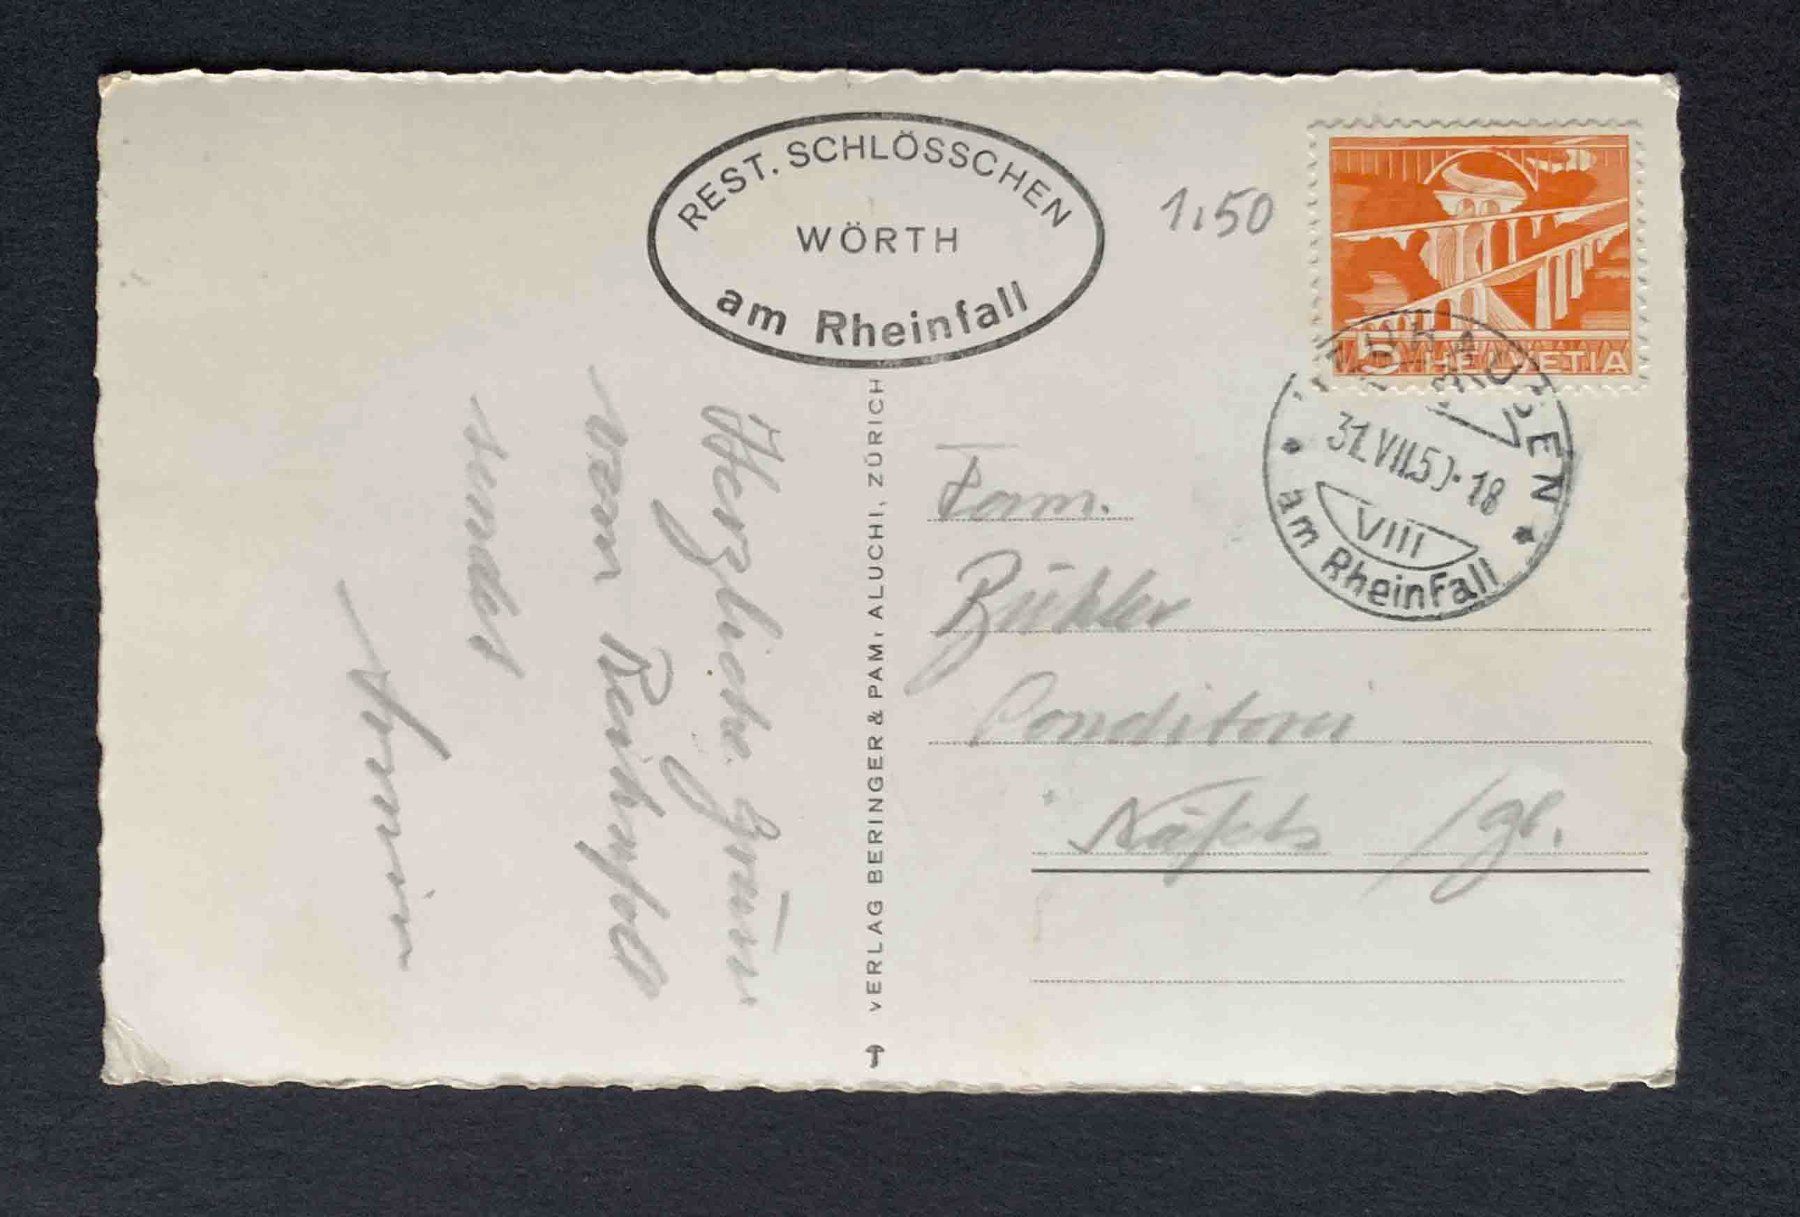 REST. SCHLÖSSCHEN
WÖRTH
am Rheinfall
1.50
5 HELVETIA
NEUHAUSEN
31.VII.50-18
VIII
am Rheinfall
Herzliche Grüsse
vom Reihnfall
sendet
Armin
VERLAG BERINGER & PAMPALUCHI, ZÜRICH
Fam.
Bühler
Conditorei
Näfels /gl.